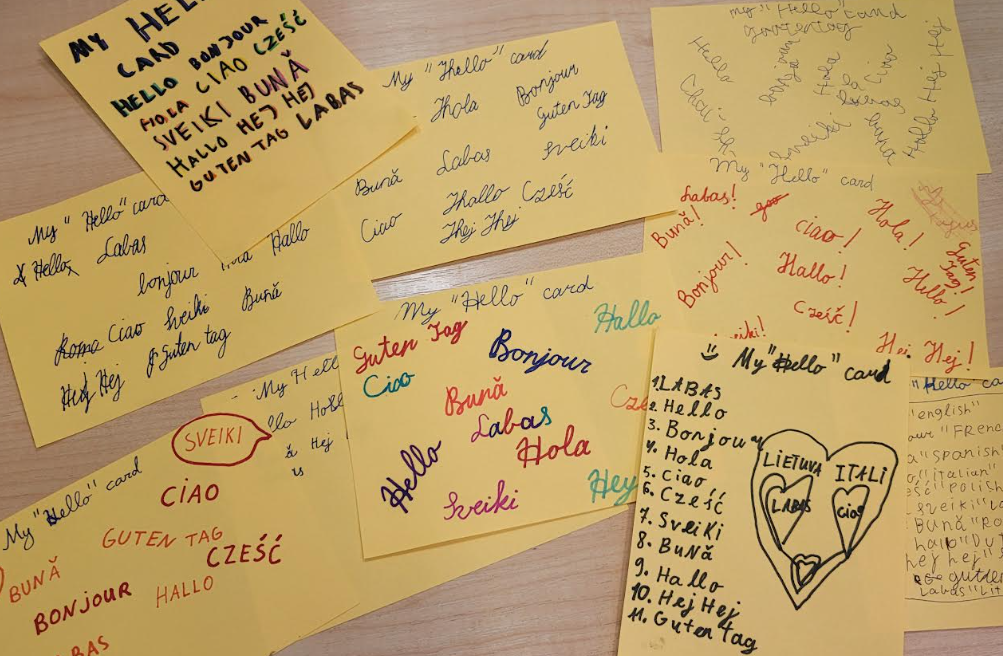 MY HELL
CARD
HELLO BONJOUR
HOLA CIAO CZEŚĆ
SVEIKI BUNĂ
HALLO HEJ HEJ
GUTEN TAG LABAS
My "Hello" card
Hola Bonjour
Guten Tag
Bună Labas Sveiki
Ciao Hallo Cześć
Hej Hej
my "Hello" card
gootentag
Hello
Hola
Ciao
labas
buna
Hallo Hej Hej
My "Hello" card
Hello Labas
bonjour Hallo
Ciao Sveiki Bună
Hej Hej Guten tag
My "Hello" card
Labas!
Bună! Ciao! Hola!
Bonjour! Hallo! Guten Tag!
Cześć! Hello!
eiki! Hej Hej!
My "Hello" card
Guten Tag Bonjour Hallo
Ciao
Bună Cze
Labas
Hello Hola
Sveiki Hey
My Hell
llo Hol
ă Hej
us
My "Hello" card
SVEIKI
CIAO
GUTEN TAG
BUNĂ CZEŚĆ
BONJOUR HALLO
BAS
My "Hello" card
1. LABAS
2. Hello
3. Bonjour
4. Hola
5. Ciao
6. Cześć
7. Sveiki
8. Bună
9. Hallo
10. Hej Hej
11. Guten tag
LIETUVA ITALI
LABAS Ciao
"Hello" ca
"english"
our "Frenc
a "Spanish"
o "italian"
eść "Polish
Sveiki "La
Bună "Ro
hallo "Du
hej hej "S
guten
Labas "Lit